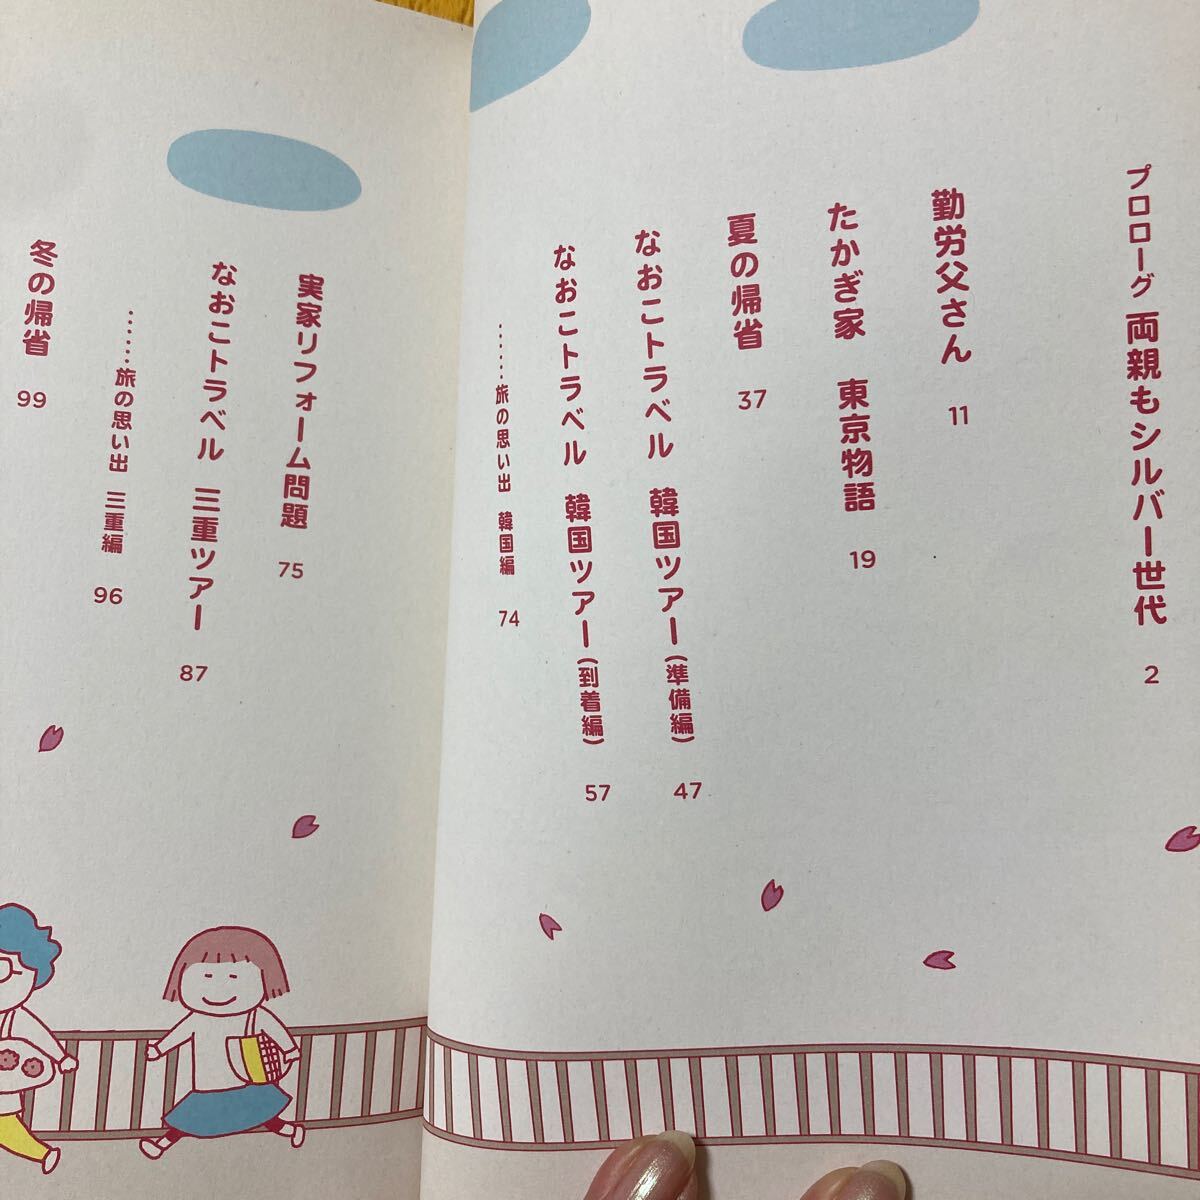 プロローグ 両親もシルバー世代 2
勤労父さん 11
たかぎ家 東京物語 19
夏の帰省 37
なおこトラベル 韓国ツアー(準備編) 47
なおこトラベル 韓国ツアー(到着編) 57
……旅の思い出 韓国編 74
実家リフォーム問題 75
なおこトラベル 三重ツアー 87
……旅の思い出 三重編 96
冬の帰省 99